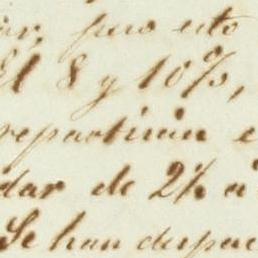 pero esto
El 8 y 10%,
repartirán e
dar de 2½ a
Se han despac